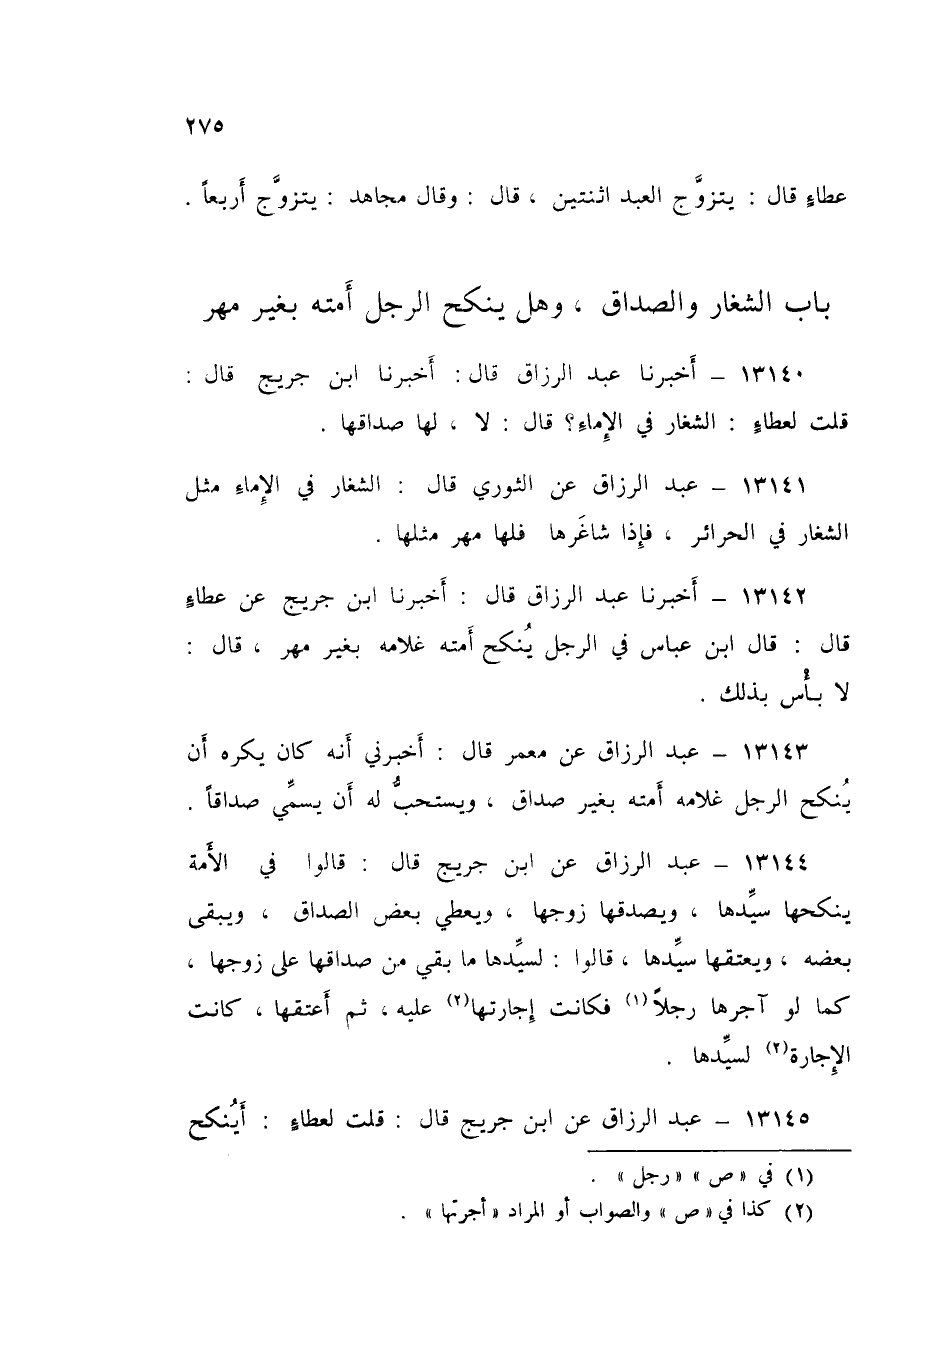 ٢٧٥
عطاءٍ قال : يتزوَّج العبد اثنتين ، قال : وقال مجاهد : يتزوَّج أَربعاً .
باب الشغار والصداق ، وهل ينكح الرجل أَمته بغير مهر
١٣١٤٠ – أَخبرنا عبد الرزاق قال : أَخبرنا ابن جريج قال :
قلت لعطاءٍ : الشغار في الإِماءِ؟ قال : لا ، لها صداقها .
١٣١٤١ – عبد الرزاق عن الثوري قال : الشغار في الإِماءِ مثل
الشغار في الحرائر ، فإِذا شاغَرها فلها مهر مثلها .
١٣١٤٢ – أَخبرنا عبد الرزاق قال : أَخبرنا ابن جريج عن عطاءٍ
قال : قال ابن عباس في الرجل يُنكح أَمته غلامه بغير مهر ، قال :
لا بأْس بذلك .
١٣١٤٣ – عبد الرزاق عن معمر قال : أَخبرني أَنه كان يكره أَن
يُنكح الرجل غلامه أَمته بغير صداق ، ويستحبُّ له أَن يسمِّي صداقاً .
١٣١٤٤ – عبد الرزاق عن ابن جريج قال : قالوا في الأَمة
ينكحها سيِّدها ، ويصدقها زوجها ، ويعطي بعض الصداق ، ويبقى
بعضه ، ويعتقها سيِّدها ، قالوا : لسيِّدها ما بقي من صداقها على زوجها ،
كما لو آجرها رجلاً(١) فكانت إِجارتها(٢) عليه ، ثم أَعتقها ، كانت
الإِجارة(٢) لسيِّدها .
١٣١٤٥ – عبد الرزاق عن ابن جريج قال : قلت لعطاءٍ : أَيُنكح
(١) في « ص » « رجل » .
(٢) كذا في « ص » والصواب أو المراد « أجرتها » .